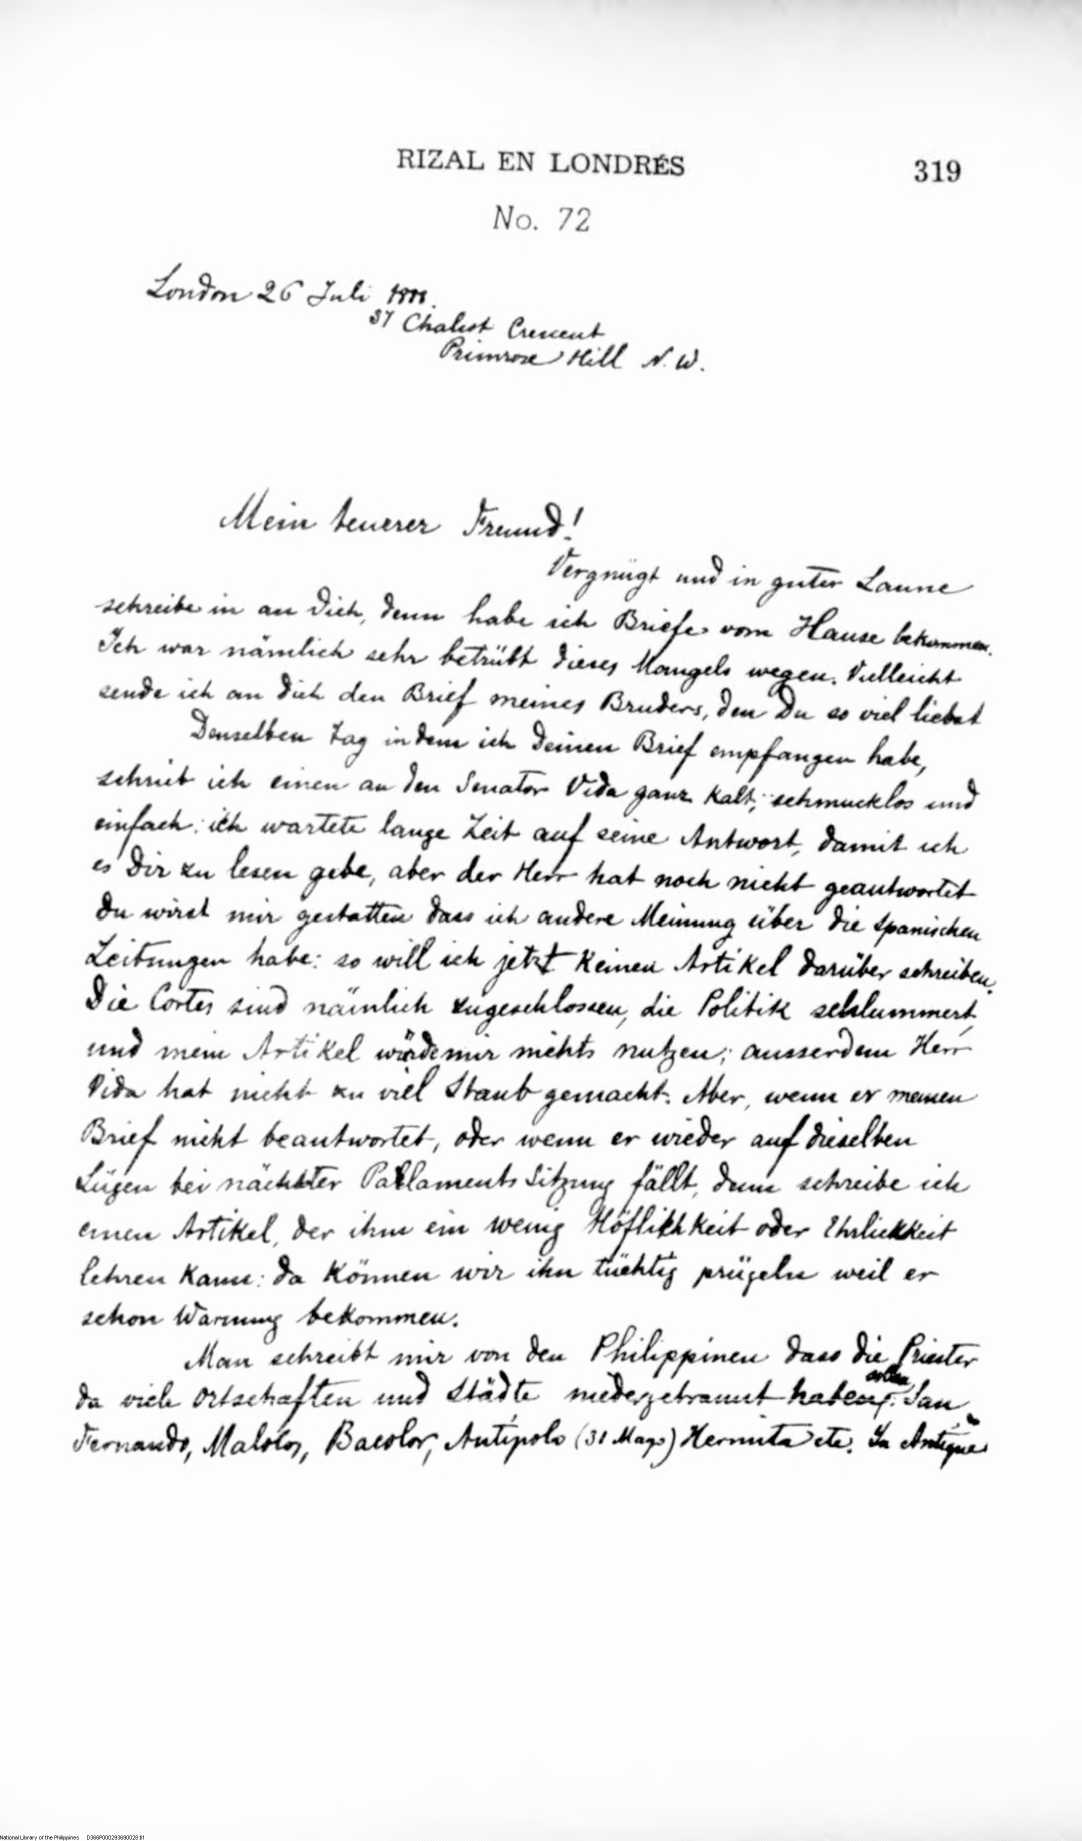 RIZAL EN LONDRÉS
319
No. 72
London 26 Juli 1888.
37 Chalcot Crescent
Primrose Hill N. W.
Mein teuerer Freund!
Vergnügt und in guter Laune
schreibe in an Dich, denn habe ich Briefe vom Hause bekommen.
Ich war nämlich sehr betrübt dieses Mangels wegen. Vielleicht
sende ich an Dich den Brief meines Bruders, den Du so viel liebst
Denselben Tag in dem ich Deinen Brief empfangen habe,
schrieb ich einen an den Senator Vida ganz kalt, schmucklos und
einfach: ich wartete lange Zeit auf seine Antwort, damit ich
es Dir zu lesen gebe, aber der Herr hat noch nicht geantwortet
Du wirst mir gestatten dass ich andere Meinung über die spanischen
Zeitungen habe: so will ich jetzt keinen Artikel darüber schreiben.
Die Cortes sind nämlich zugeschlossen, die Politik schlummert,
und mein Artikel würde mir nichts nutzen; ausserdem Herr
Vida hat nicht zu viel Staub gemacht. Aber, wenn er meinen
Brief nicht beantwortet, oder wenn er wieder auf dieselben
Lügen bei nächster Parlaments Sitzung fällt, dann schreibe ich
einen Artikel, der ihm ein wenig Höflichkeit oder Ehrlichkeit
lehren kann: da können wir ihn tüchtig prügeln weil er
schon Warnung bekommen.
Man schreibt mir von den Philippinen dass die Priester
da viele Ortschaften und Städte niedergebrannt haben sollen: San
Fernando, Malolos, Bacolor, Antipolo (31 Mayo) Hermita etc. In Antique